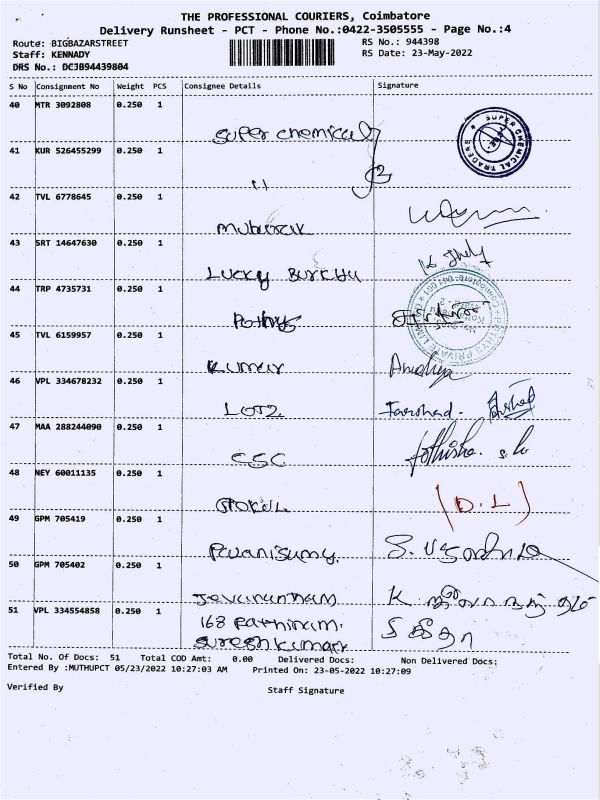 THE PROFESSIONAL COURIERS, Coimbatore
Delivery Runsheet - PCT - Phone No.:0422-3505555 - Page No.:4
Route: BIGBAZARSTREET RS No.: 944398
Staff: KENNADY RS Date: 23-May-2022
DRS No.: DCJB94439804
S No Consignment No Weight PCS Consignee Details Signature
40 MTR 3092808 0.250 1 super chemical
SUPER CHEMICAL TRADERS
41 KUR 526455299 0.250 1 11
42 TVL 6778645 0.250 1 mubarak
43 SRT 14647630 0.250 1 Lucky
44 TRP 4735731 0.250 1 Pothys
45 TVL 6159957 0.250 1 Kumar
46 VPL 334678232 0.250 1 LOTZ Farshad -
47 MAA 288244090 0.250 1 CSC
48 NEY 60011135 0.250 1 (D.L)
49 GPM 705419 0.250 1
50 GPM 705402 0.250 1 K
51 VPL 334554858 0.250 1 168
sureshkumar
Total No. Of Docs: 51 Total COD Amt: 0.00 Delivered Docs: Non Delivered Docs:
Entered By :MUTHUPCT 05/23/2022 10:27:03 AM Printed On: 23-05-2022 10:27:09
Verified By Staff Signature